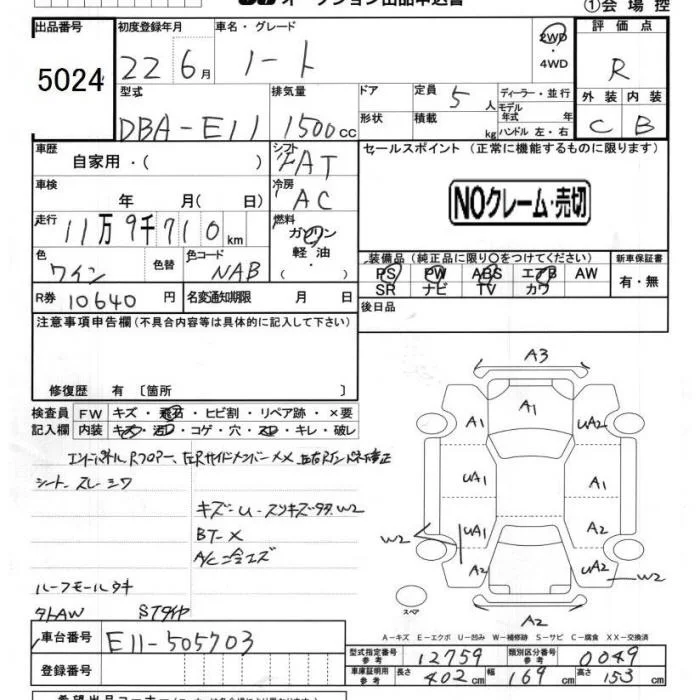 オークション出品申込書
①会場控
出品番号 初度登録年月 車名・グレード 評価点
5024 22 6月 ノート 2WD・4WD R
型式 排気量 ドア 定員 ディーラー・並行 外装 内装
DBA-E11 1500cc 5人 モデル年式 年 C B
形状 積載 kg ハンドル 左・右
車歴 自家用・( ) シフト FAT セールスポイント (正常に機能するものに限ります)
車検 年 月( 日) 冷房 AC NOクレーム・売切
走行 11万9千710km 燃料 ガソリン
軽油
・( )
色 ワイン 色替 色コード NAB 装備品 (純正品に限り○をつけてください) 新車保証書
PS PW ABS エアB AW 有・無
SR ナビ TV カワ
R券 10640円 名変通知期限 月 日 後日品
注意事項申告欄(不具合内容等は具体的に記入して下さい)
修復歴 有 〔箇所 〕
検査員 FW キズ・飛石・ヒビ割・リペア跡・×要
記入欄 内装 キズ・汚レ・コゲ・穴・スレ・キレ・破レ
シート スレ シワ
BT-X
ルーフモール キキ
タトAW STタイヤ
A3
A1
A1 UA2
UA1 A1
UA1 A2
W2
A2 UA2
W2
スペア
A2
A-キズ E-エクボ U-凹み W-補修跡 S-サビ C-腐食 XX-交換済
車台番号 E11-505703
型式指定番号 参考 12759 類別区分番号 参考 0049
登録番号
車庫証明用 参考 長さ 402cm 幅 169cm 高さ 153cm
希望出品コーナー